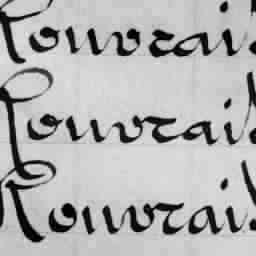 Rouvrai
Rouvrai
Rouvrai